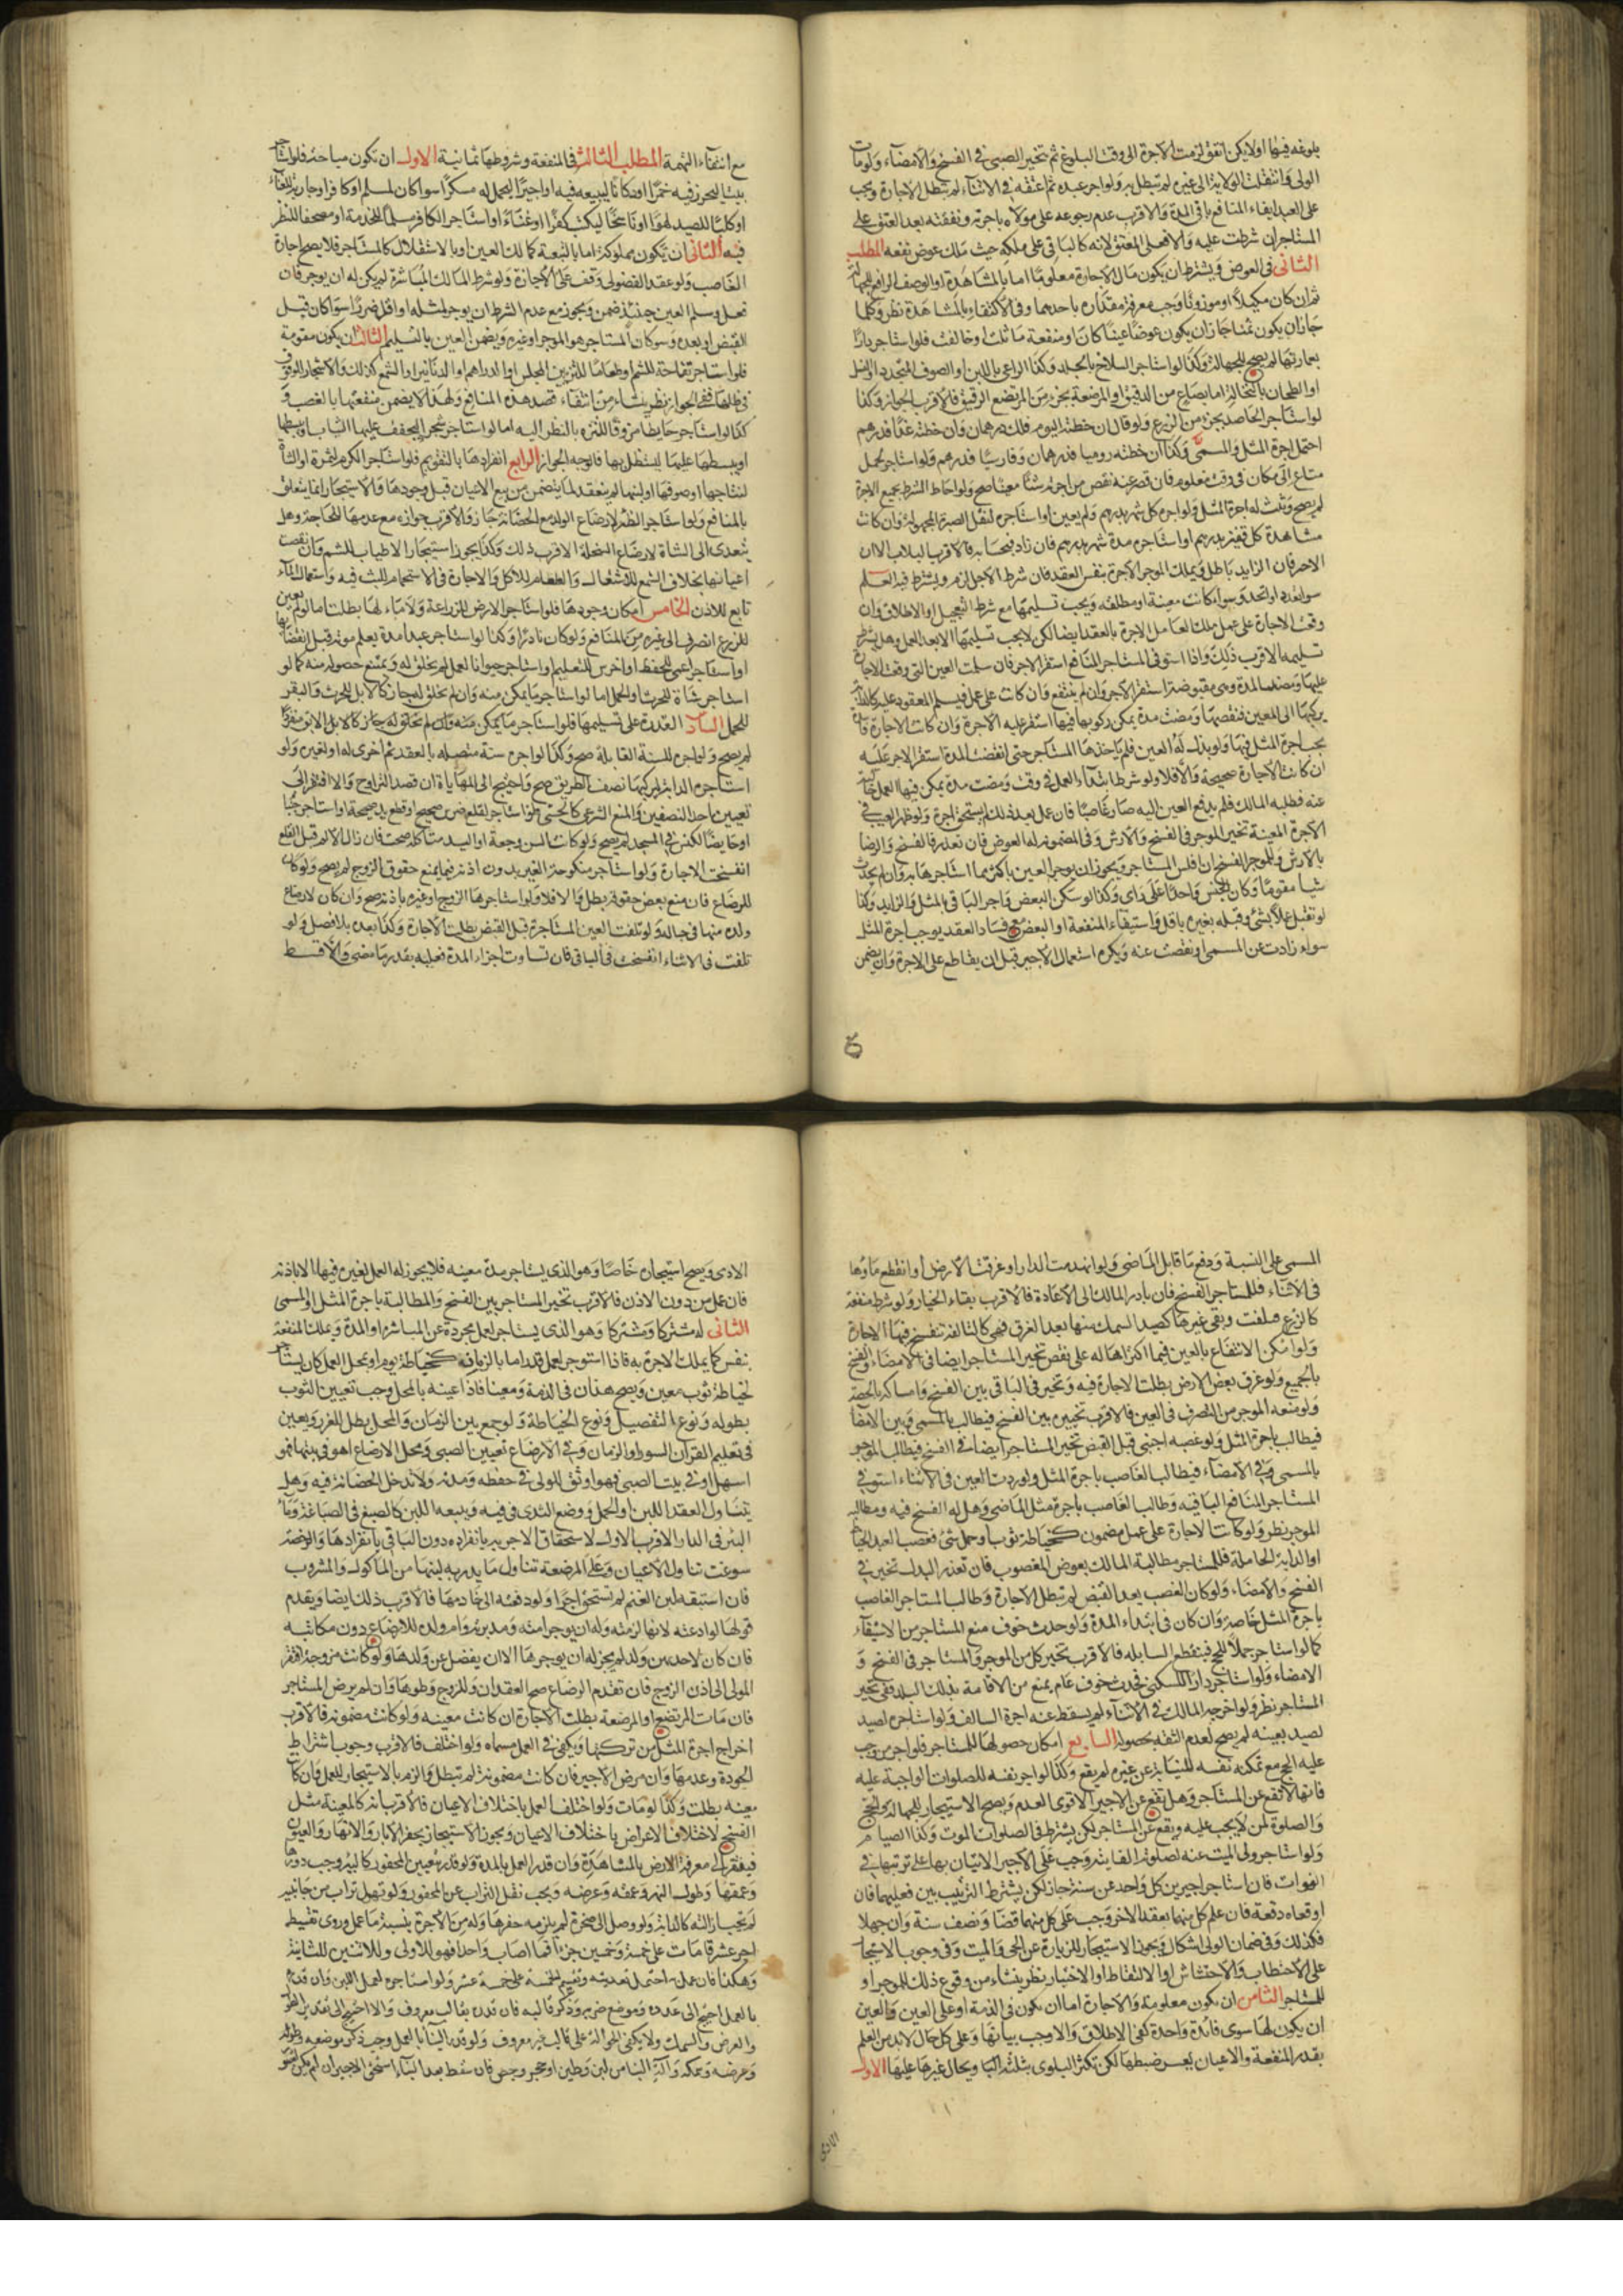 بلوغه فيها اولا يكن اتفق لزمت الاجرة الى وقت البلوغ ثم تخير الصبى فى الفسخ والامضاء ولو مات
الولى وانتقلت الولاية الى غيره لم تبطل ولو اجر عبده ثم اعتقه فى الاثناء لم تبطل الاجارة ويجب
على العبد ايفاء المنافع باقى المدة والاقرب عدم رجوعه على مولاه باجرته ونفقته بعد العتق على
المستاجر ان شرطت عليه والا فعلى المعتق لانه كالباقى على ملكه حيث ملك عوض نفعه المطلب
الثانى فى العوض ويشترط ان يكون مال الاجارة معلوما اما بالمشاهدة او الوصف الرافع للجهالة
ثم ان كان مكيلا او موزونا وجب معرفة مقداره باحدهما وفى الاكتفاء بالمشاهدة نظر وكلما
جاز ان يكون ثمنا جاز ان يكون عوضا عينا كان او منفعة ماثلت او خالفت فلو استاجر دارا
بعمارتها لم يصح للجهالة وكذا لو استاجر السلاخ بالجلد وكذا الراعى باللبن او الصوف المتجدد او النسل
او الطحان بالنخالة اما بصاع من الدقيق او المرضعة بجزء من المرتضع الرقيق فالاقرب الجواز وكذا
لو استاجر الحاصد بجزء من الزرع ولو قال ان خطته اليوم فلك درهمان وان خطته غدا فدرهم
احتمل اجرة المثل والمسمى وكذا ان خطته روميا فدرهمان وفارسيا فدرهم ولو استاجر لحمل
متاع الى مكان فى وقت معلوم فان قصر عنه نقص من اجرته شيئا معينا صح ولو احاط الشرط بجميع الاجرة
لم يصح وثبت له اجرة المثل ولو اجره كل شهر بدرهم ولم يعين او استاجره لنقل الصبرة المجهولة وان كانت
مشاهدة كل قفيز بدرهم او استاجره مدة شهر بدرهم فان زاد فبحسابه فالاقرب البطلان الا ان
الاخر فان الزايد باطل ويملك الموجر الاجرة بنفس العقد فان شرط الاجل لزم ويشترط فيه العلم
سواء تعدد او اتحد وسواء كانت معينة او مطلقة ويجب تسليمها مع شرط التعجيل او الاطلاق وان
وقعت الاجارة على عمل ملك العامل الاجرة بالعقد ايضا لكن لا يجب تسليمها الا بعد العمل وهل يشترط
تسليمه الاقرب ذلك واذا استوفى المستاجر المنافع استقر الاجر فان سلمت العين التى وقعت الاجارة
عليها ومضت المدة وهى مقبوضة استقر الاجر وان لم ينتفع وان كانت على عمل فيسلم المعقود عليه كالدابة
يركبها الى المعين فقبضها ومضت مدة يمكن ركوبها فيها استقر عليه الاجرة وان كانت الاجارة فاسدة
يجب اجرة المثل فيها ولو بذل له العين فلم ياخذها المستاجر حتى انقضت المدة استقر الاجر عليه
ان كانت الاجارة صحيحة والا فلا ولو شرط ابتداء العمل فى وقت ومضت مدة يمكن فيها العمل
عنه فطلبه المالك فلم يدفع العين اليه صار غاصبا فان عمل بعد ذلك لم يستحق اجرة ولو ظهر العيب فى
الاجرة المعينة تخير الموجر فى الفسخ والارش وفى المضمونة له العوض فان تعذر فالفسخ والرضا
بالارش وللموجر الفسخ ان افلس المستاجر ويجوز ان يوجر العين باكثر مما استاجرها به وان لم يحدث
شيا مقوما وكان الجنس واحدا على راى وكذا لو سكن البعض واجر الباقى بالمثل والزايد وكذا
لو تقبل عملا بشئ وقبله بغيره باقل واستيفاء المنفعة او البعض مع فساد العقد يوجب اجرة المثل
سواء زادت عن المسمى او نقصت عنه ويكره استعمال الاجير قبل ان يقاطع على الاجرة وان يضمن
مع انتفاء التهمة المطلب الثالث فى المنفعة وشروطها ثمانية الاول ان تكون مباحة فلو استاجر
بيتا ليحرز فيه خمرا او دكانا ليبيعه فيه او اجيرا ليحمل له مسكرا سوا كان لمسلم او كافر او جارية للغناء
او كلبا للصيد لهوا او ناسخا ليكتب كفرا او غناء او استاجر الكافر مسلما للخدمة او مصحفا للنظر
فيه الثانى ان تكون مملوكة اما بالتبعة كمالك العين او بالاستقلال كالمستاجر فلا يصح اجارة
الغاصب ولو عقد الفضولى وقف على الاجازة ولو شرط المالك المباشرة لم يكن له ان يوجر فان
فعل وسلم العين حينئذ ضمن ويجوز مع عدم الشرط ان يوجر لمثله او اقل ضررا سوا كان قبل
القبض او بعده وسوا كان المستاجر هو الموجر او غيره ويضمن العين بالتسليم الثالث ان يكون مقومة
فلو استاجر تفاحة للشم او طعاما للتزيين المجلس او الدراهم او الدنانير او الشمع كذلك والاشجار للوقوف
فى ظلها ففى الجواز نظر ينشاء من انتفاء قصد هذه المنافع ولهذا لا يضمن منفعتها بالغصب و
كذا لو استاجر حايطا مزوقا للتنزه بالنظر اليه اما لو استاجر شجرا ليجفف عليها الثياب او يبسطها
او يبسطها عليها ليستظل بها فالوجه الجواز الرابع انفرادها بالتقويم فلو استاجر الكرم لثمرة او الشاة
لنتاجها او صوفها او لبنها لم ينعقد لما يتضمن من بيع الاعيان قبل وجودها ولا الاستيجار انما يتعلق
بالمنافع ولو استاجر الظئر لارضاع الولد مع الحضانة جاز والاقرب جوازه مع عدمها للحاجة وهل
يتعدى الى الشاة لارضاع السخلة الاقرب ذلك وكذا يجوز استيجار الاطياب للشم وان نقصت
اعيانها بخلاف الشمع للاشعال والطعام للاكل والاجارة فى الاستحمام للبث فيه واستعمال الماء
تابع للاذن الخامس امكان وجودها فلو استاجر الارض للزراعة ولا ماء لها بطلت اما لو لم يعين
للزرع انصرف الى غيره من المنافع ولو كان نادرا وكذا لو استاجر عبدا مدة يعلم موته قبل انقضائها
او استاجر اعمى للحفظ او اخرس للتعليم او استاجر حيوانا لعمل لم يخلق له ويمتنع حصوله منه كما لو
استاجر شاة للحرث او الحمل اما لو استاجر ما يمكن منه وان لم يخلق له جاز كالابل للحرث والبقر
للحمل السادس القدرة على تسليمها فلو استاجر ما يمكن منه وان لم يخلق له جاز كالابل الابق مفردا
لم يصح ولو اجره للسنة القابلة صح وكذا لو اجره سنة متصلة بالعقد ثم اخرى له او لغيره ولو
استاجره الدابة ليركبها نصف الطريق صح واحتيج الى المهاياة ان قصد التراوح والا افتقر الى
تعيين احد النصفين والمنع الشرعى كالحسى فلو استاجر لقلع ضرس صحيح او قطع يد صحيحة او استاجر جنبا
او حايضا لكنس المسجد لم يصح ولو كانت السن وجعة او اليد متاكلة صحت فان زال الالم قبل القلع
انفسخت الاجارة ولو استاجر منكوحة الغير بدون اذنه فيما يمنع حقوق الزوج لم يصح ولو كان
للرضاع فان منع بعض حقوقه بطل والا فلا ولو استاجرها الزوج او غيره باذنه صح وان كان لارضاع
ولده منها فى حباله ولو تلفت العين المستاجرة قبل القبض بطلت الاجارة وكذا بعده بلا فصل ولو
تلفت فى الاثناء انفسخت فى الباقى فان تساوت اجزاء المدة فعليه بقدر ما مضى والا قسط
المسمى على النسبة ودفع ما قابل الماضى ولو انهدمت الدار او غرقت الارض او انقطع ماؤها
فى الاثناء فللمستاجر الفسخ فان بادر المالك الى الاعادة فالاقرب بقاء الخيار ولو شرط منفعة
كالزرع فتلفت وبقى غيرها كصيد السمك منها بعد الغرق فهى كالتالفة تنفسخ فيها الاجارة
ولو امكن الانتفاع بالعين فيما اكتراها له على نقص تخير المستاجر ايضا فى الامضاء والفسخ
بالجميع ولو غرق بعض الارض بطلت الاجارة فيه وتخير فى الباقى بين الفسخ وامساكه بالحصة
ولو منعه الموجر من التصرف فى العين فالاقرب تخييره بين الفسخ فيطالب بالمسمى وبين الامضاء
فيطالب باجرة المثل ولو غصبه اجنبى قبل القبض تخير المستاجر ايضا فى الفسخ فيطالب الموجر
بالمسمى وفى الامضاء فيطالب الغاصب باجرة المثل ولو ردت العين فى الاثناء استوفى
المستاجر المنافع الباقية وطالب الغاصب باجرة مثل الماضى وهل له الفسخ فيه ومطالبة
الموجر نظر ولو كانت الاجارة على عمل مضمون كخياطة ثوب او حمل شئ فغصب العبد الخياط
او الدابة الحاملة فللمستاجر مطالبة المالك بعوض المغصوب فان تعذر البدل تخير فى
الفسخ والامضاء ولو كان الغصب بعد القبض لم تبطل الاجارة وطالب المستاجر الغاصب
باجرة المثل خاصة وان كان فى ابتداء المدة ولو حدث خوف منع المستاجر من الاستيفاء
كما لو استاجر جملا للحج فينقطع السابلة فالاقرب تخير كل من الموجر والمستاجر فى الفسخ و
الامضاء ولو استاجر دارا للسكنى فحدث خوف عام يمنع من الاقامة بذلك البلد ففى تخير
المستاجر نظر ولو اخرجه المالك فى الاثناء لم يسقط عنه اجرة السالف ولو استاجره لصيد
لصيد بعينه لم يصح لعدم الثقة بحصوله السابع امكان حصولها للمستاجر فلو اجر من وجب
عليه الحج مع تمكنه نفسه للنيابة عن غيره لم يقع وكذا لو اجر نفسه للصلوات الواجبة عليه
فانها لا تقع عن المستاجر وهل تقع عن الاجير الاقوى العدم ويصح الاستيجار للجهاد والحج
والصلوة لمن لا يجب عليه ويقع عن المستاجر لكن يشترط فى الصلوات الموت وكذا الصيام
ولو استاجر ولى الميت عنه لصلوته الفايتة وجب على الاجير الاتيان بها على ترتيبها فى
الفوات فان استاجر اجيرين كل واحد عن سنة جاز لكن يشترط الترتيب بين فعليهما فان
اوقعاه دفعة فان علم كل منهما بعقد الاخر وجب على كل منهما قضاء نصف سنة وان جهلا
فكذلك وفى ضمان الولى اشكال ويجوز الاستيجار للزيارة عن الحى والميت وفى وجوب الاستيجار
على الاحتطاب والاحتشاش او الالتقاط او الاختبار نظر ينشاء من وقوع ذلك للموجر او
للمستاجر الثامن ان يكون معلومة والاجارة اما ان يكون فى الذمة او على العين والعين
ان يكون لها سوى فائدة واحدة كفى الاطلاق والا وجب بيانها وعلى كل حال لا بد من العلم
بقدر المنفعة والاعيان يعسر ضبطها لكن تكثر البلوى بثلثة ابحاث ويحال غيرها عليها الاول
الادى
الادى ويصح استيجاره خاصا وهو الذى يستاجر مدة معينة فلا يجوز له العمل لغيره فيها الا باذنه
فان عمل من دون الاذن فالاقرب تخير المستاجر بين الفسخ والمطالبة باجرة المثل او المسمى
الثانى له مشتركا وشتركا وهو الذى يستاجر لعمل مجردة عن المباشرة او المدة ويملك المنفعة
بنفس كما يملك الاجرة به فاذا استوجر لعمل قدر اما بالزمان كخياطة يوم او بمحل العمل كان يستاجر
لخياطة ثوب معين ويصح هذان فى الذمة ومعينا فاذا عينه بالمحل وجب تعيين الثوب
بطوله ونوع التفصيل ونوع الخياطة ولو جمع بين الزمان والمحل بطل للغرر ويعين
فى تعليم القران السورة او الزمان وفى الارضاع تعيين الصبى ومحل الارضاع اهو فى بيتها فهو
اسهل او فى بيت الصبى فهو اوثق للولى فى حفظه ومدته ولا تدخل الحضانة فيه وهل
يتناول العقد اللبن او الحمل ووضع الثدى فى فيه ويتبعه اللبن كالصبغ فى الصباغة وماء
البئر فى الدار الاقرب الاول لاستحقاق الاجر به بانفراده دون الباقى بانفرادها والرخصة
سوغت تناول الاعيان وعلى المرضعة تناول ما يدر به لبنها من الماكول والمشروب
فان استبقه لبن الغنم لم تستحق اجرا ولو دفعته الى خادمها فالاقرب ذلك ايضا ويقدم
قولها لو ادعته لانها امينة وله ان يوجر امته ومدبرته وام ولده للارضاع دون مكاتبته
فان كان لاحدهن ولد لم يجز له ان يوجرها الا ان يفضل عن ولدها ولو كانت مزوجة افتقر
المولى الى اذن الزوج فان تقدم الرضاع صح العقدان وللزوج وطوها وان لم يرض المستاجر
فان مات المرتضع او المرضعة بطلت الاجارة ان كانت معينة ولو كانت مضمونة فالاقرب
اخراج اجرة المثل من تركتها ويكفى فى العمل مسماه ولو اختلف فالاقرب وجوب اشتراط
الجودة وعدمها وان مرض الاجير فان كانت مضمونة لم تبطل والزم بالاستيجار للعمل وان كانت
معينة بطلت وكذا لو مات ولو اختلف العمل باختلاف الاعيان فالاقرب انه كالمعينة مثل
الفسخ لاختلاف الاعراض باختلاف الاعيان ويجوز الاستيجار بحفر الابار والانهار والعيون
فيفتقر الى معرفة الارض بالمشاهدة وان قدر العمل بالمدة ولو قدر بتعيين المحفور كالبير وجب دورها
وعمقها وطول النهر وعمقه وعرضه ويجب نقل التراب عن المحفور ولو تهول تراب من جانبيه
لم يجب ازالته كالدابة ولو وصل الى صخرة لم يلزمه حفرها وله من الاجرة بنسبة ما عمل وروى تقسيط
اجر عشر قامات على خمسة وخمسين جزءا فما اصاب واحدا فهو للاولى وللاثنين للثانية
وهكذا فان عمل احتمل تعديته وتقسيم الخمسة على خمسة عشر ولو استاجره لعمل اللبن وان قدره
بالعمل احتيج الى عدده وموضع ضربه وذكر قالبه فان قدره بقالب معروف والا احتيج الى تقدير الطول
والعرض والسمك ولا يكفى الحوالة على قالب غير معروف ولو قدر البناء بالعمل وجب ذكر موضعه وطوله
وعرضه وسمكه وآلة البناء من لبن وطين او حجر وجص فان سقط بعد البناء استحق الاجير ان لم يكن لسوء